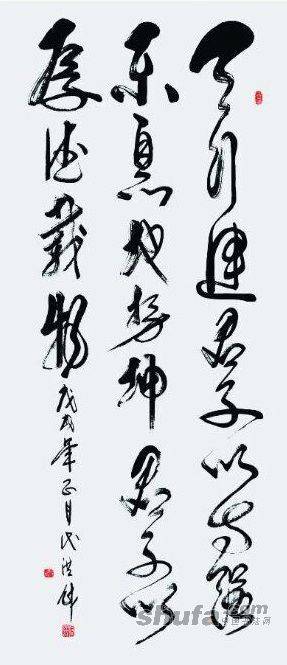 天行健君子以自强
不息地势坤君子以
厚德载物
戊戌年正月
shufa.com
中国书法网